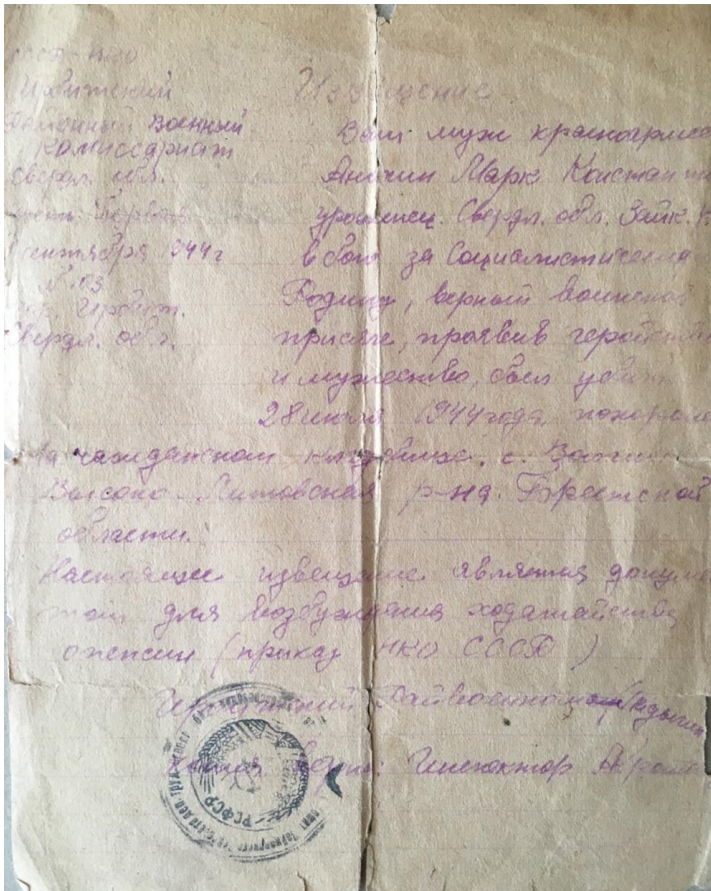 СССР-НКО
Ирбитский
Районный Военный
Комиссариат
Свердл. обл.
сентября 1944 г
N 103
гор. Ирбит.
Свердл. обл.
Извещение
Ваш муж красноарме
Аничин Марк Констан
уроженец Свердл. обл. Зайк.
в бою за Социалистическ
Родину, верный воинской
присяге, проявив геройств
и мужество, был убит
28 июля 1944 года, похоро
На гражданском кладбище. с.
Высоко-Литовская р-на. Брестской
области.
Настоящее извещение является докуме
том для возбуждения ходатайств
пенсии (приказ НКО СССР )
Райвоенком
Копия верна: Инспектор
РСФСР